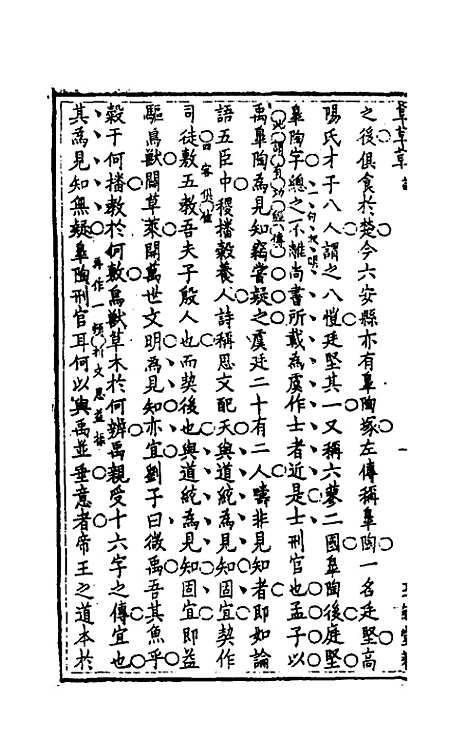 之後俱食於楚今六安縣亦有臯陶塚左傳稱臯陶一名廷堅高
陽氏才子八人謂之八愷廷堅其一又稱六蓼二國臯陶後廷堅
臯陶字總之不離尚書所載為虞作士者近是士刑官也孟子以
一句攻明
禹臯陶為見知竊嘗疑之虞廷二十有二人疇非見知者即如論
此謂有功經傳
語五臣中稷播穀養人詩稱思文配天與道統為見知固宜契作
司徒敷五教吾夫子殷人也而契後也與道統為見知固宜即益
四客俱陪
驅鳥獸闢草萊開萬世文明為見知亦宜劉子曰微禹吾其魚乎
穀于何播教於何敷鳥獸草木於何辨禹親受十六字之傳宜也
其為見知無疑臯陶刑官耳何以與禹並垂意者帝王之道本於
再作一頓折文思益振